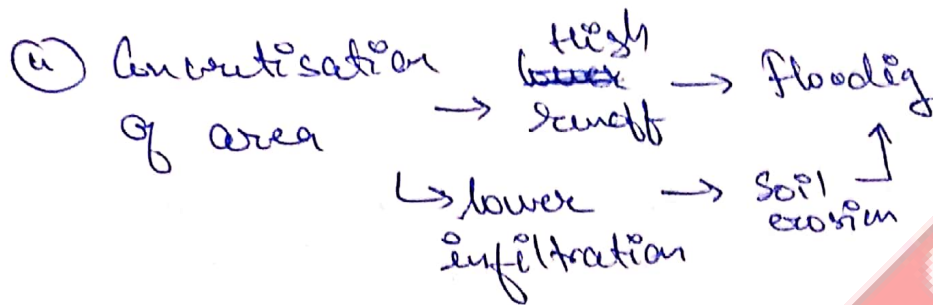 (ii) Concretisation of area → High runoff → Floodig
↳ lower infiltration → Soil erosion ↑